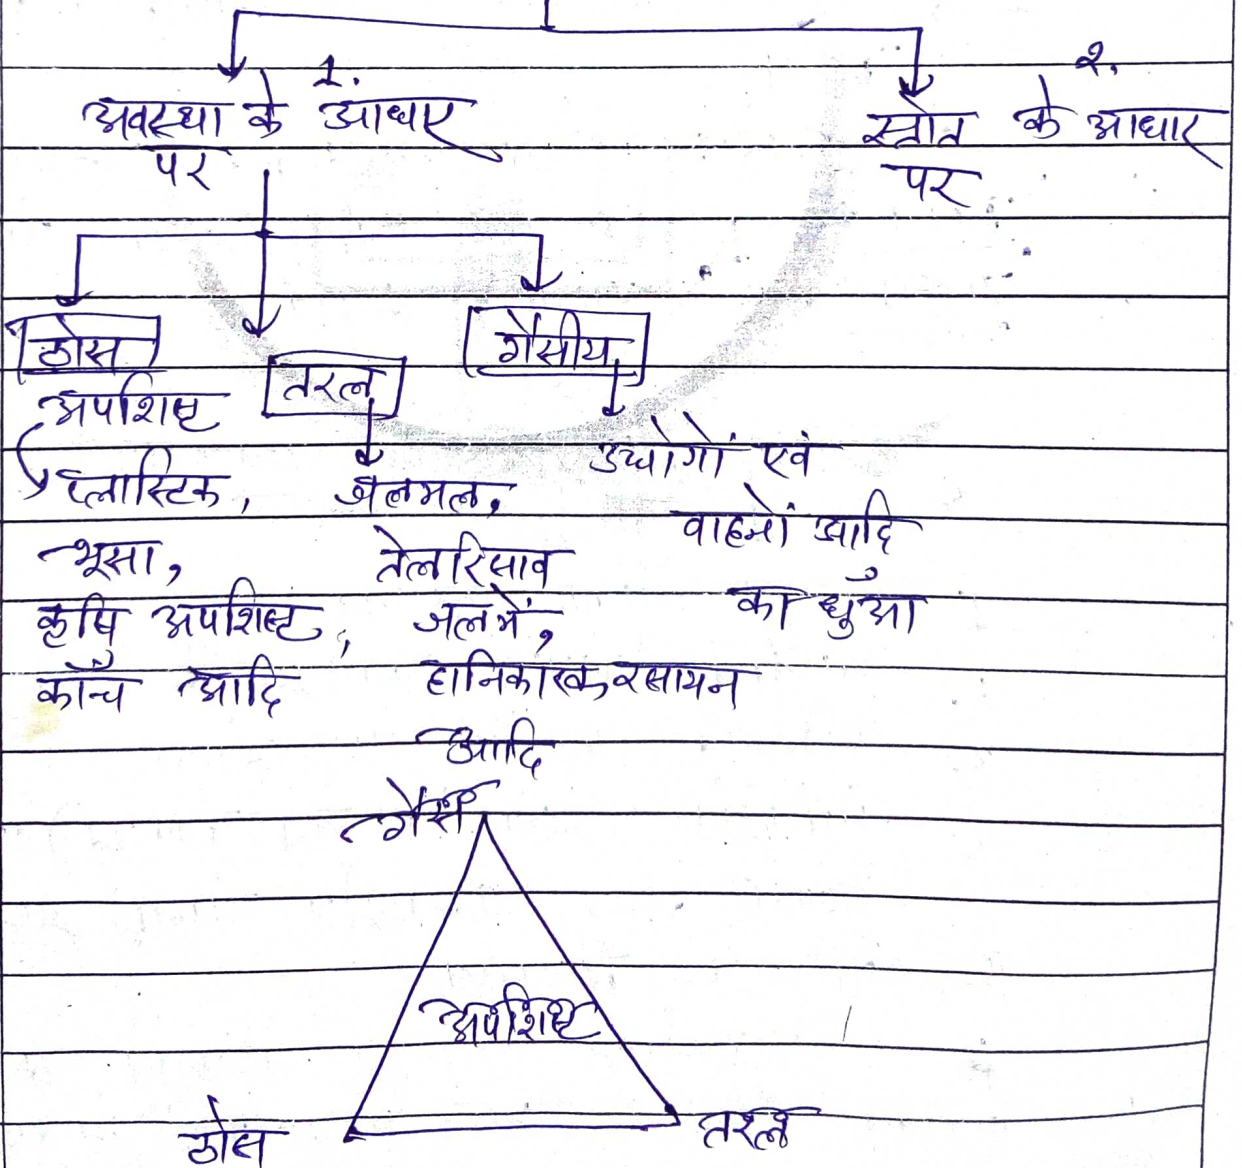 1.
अवस्था के आधार
पर
२.
स्त्रोत के आधार
पर
ठोस
अपशिष्ट
प्लास्टिक,
भूसा,
कृषि अपशिष्ट,
काँच आदि
तरल
जलमल,
तेलरिसाव
जलमें,
हानिकारक रसायन
आदि
गैसीय
उद्योगों एवं
वाहनों आदि
का धुँआ
गैसें
अपशिष्ट
ठोस
तरल